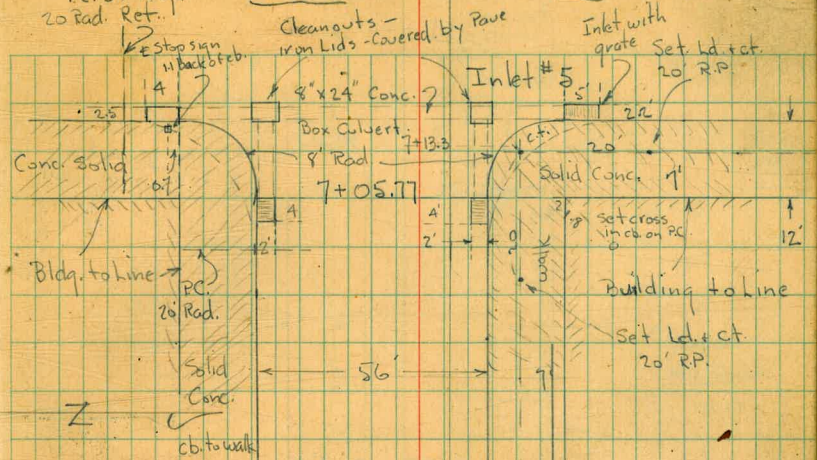 20 Rad. Ret.
Cleanouts -
iron Lids - Covered by Pave
Inlet with
grate
Set. Ld. & ct.
20' R.P.
Stop sign
Back of cb.
Inlet #5
4
5'
2.5
8" x 24" Conc.
2.2'
Box Culvert
7+13.3
c.t.
20
Conc. Solid
8' Rad
Solid Conc.
7'
0.7
7+05.77
4
4'
2'
set cross
in cb. on P.C.
12'
2'
2'
walk
Bldg. to Line
P.C.
20' Rad.
Building to Line
Set Ld. & ct.
20' R.P.
Solid
Conc.
56'
7'
Z
cb. to walk